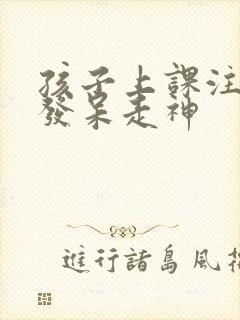 孩子上課注
發呆走神
進行諸島風